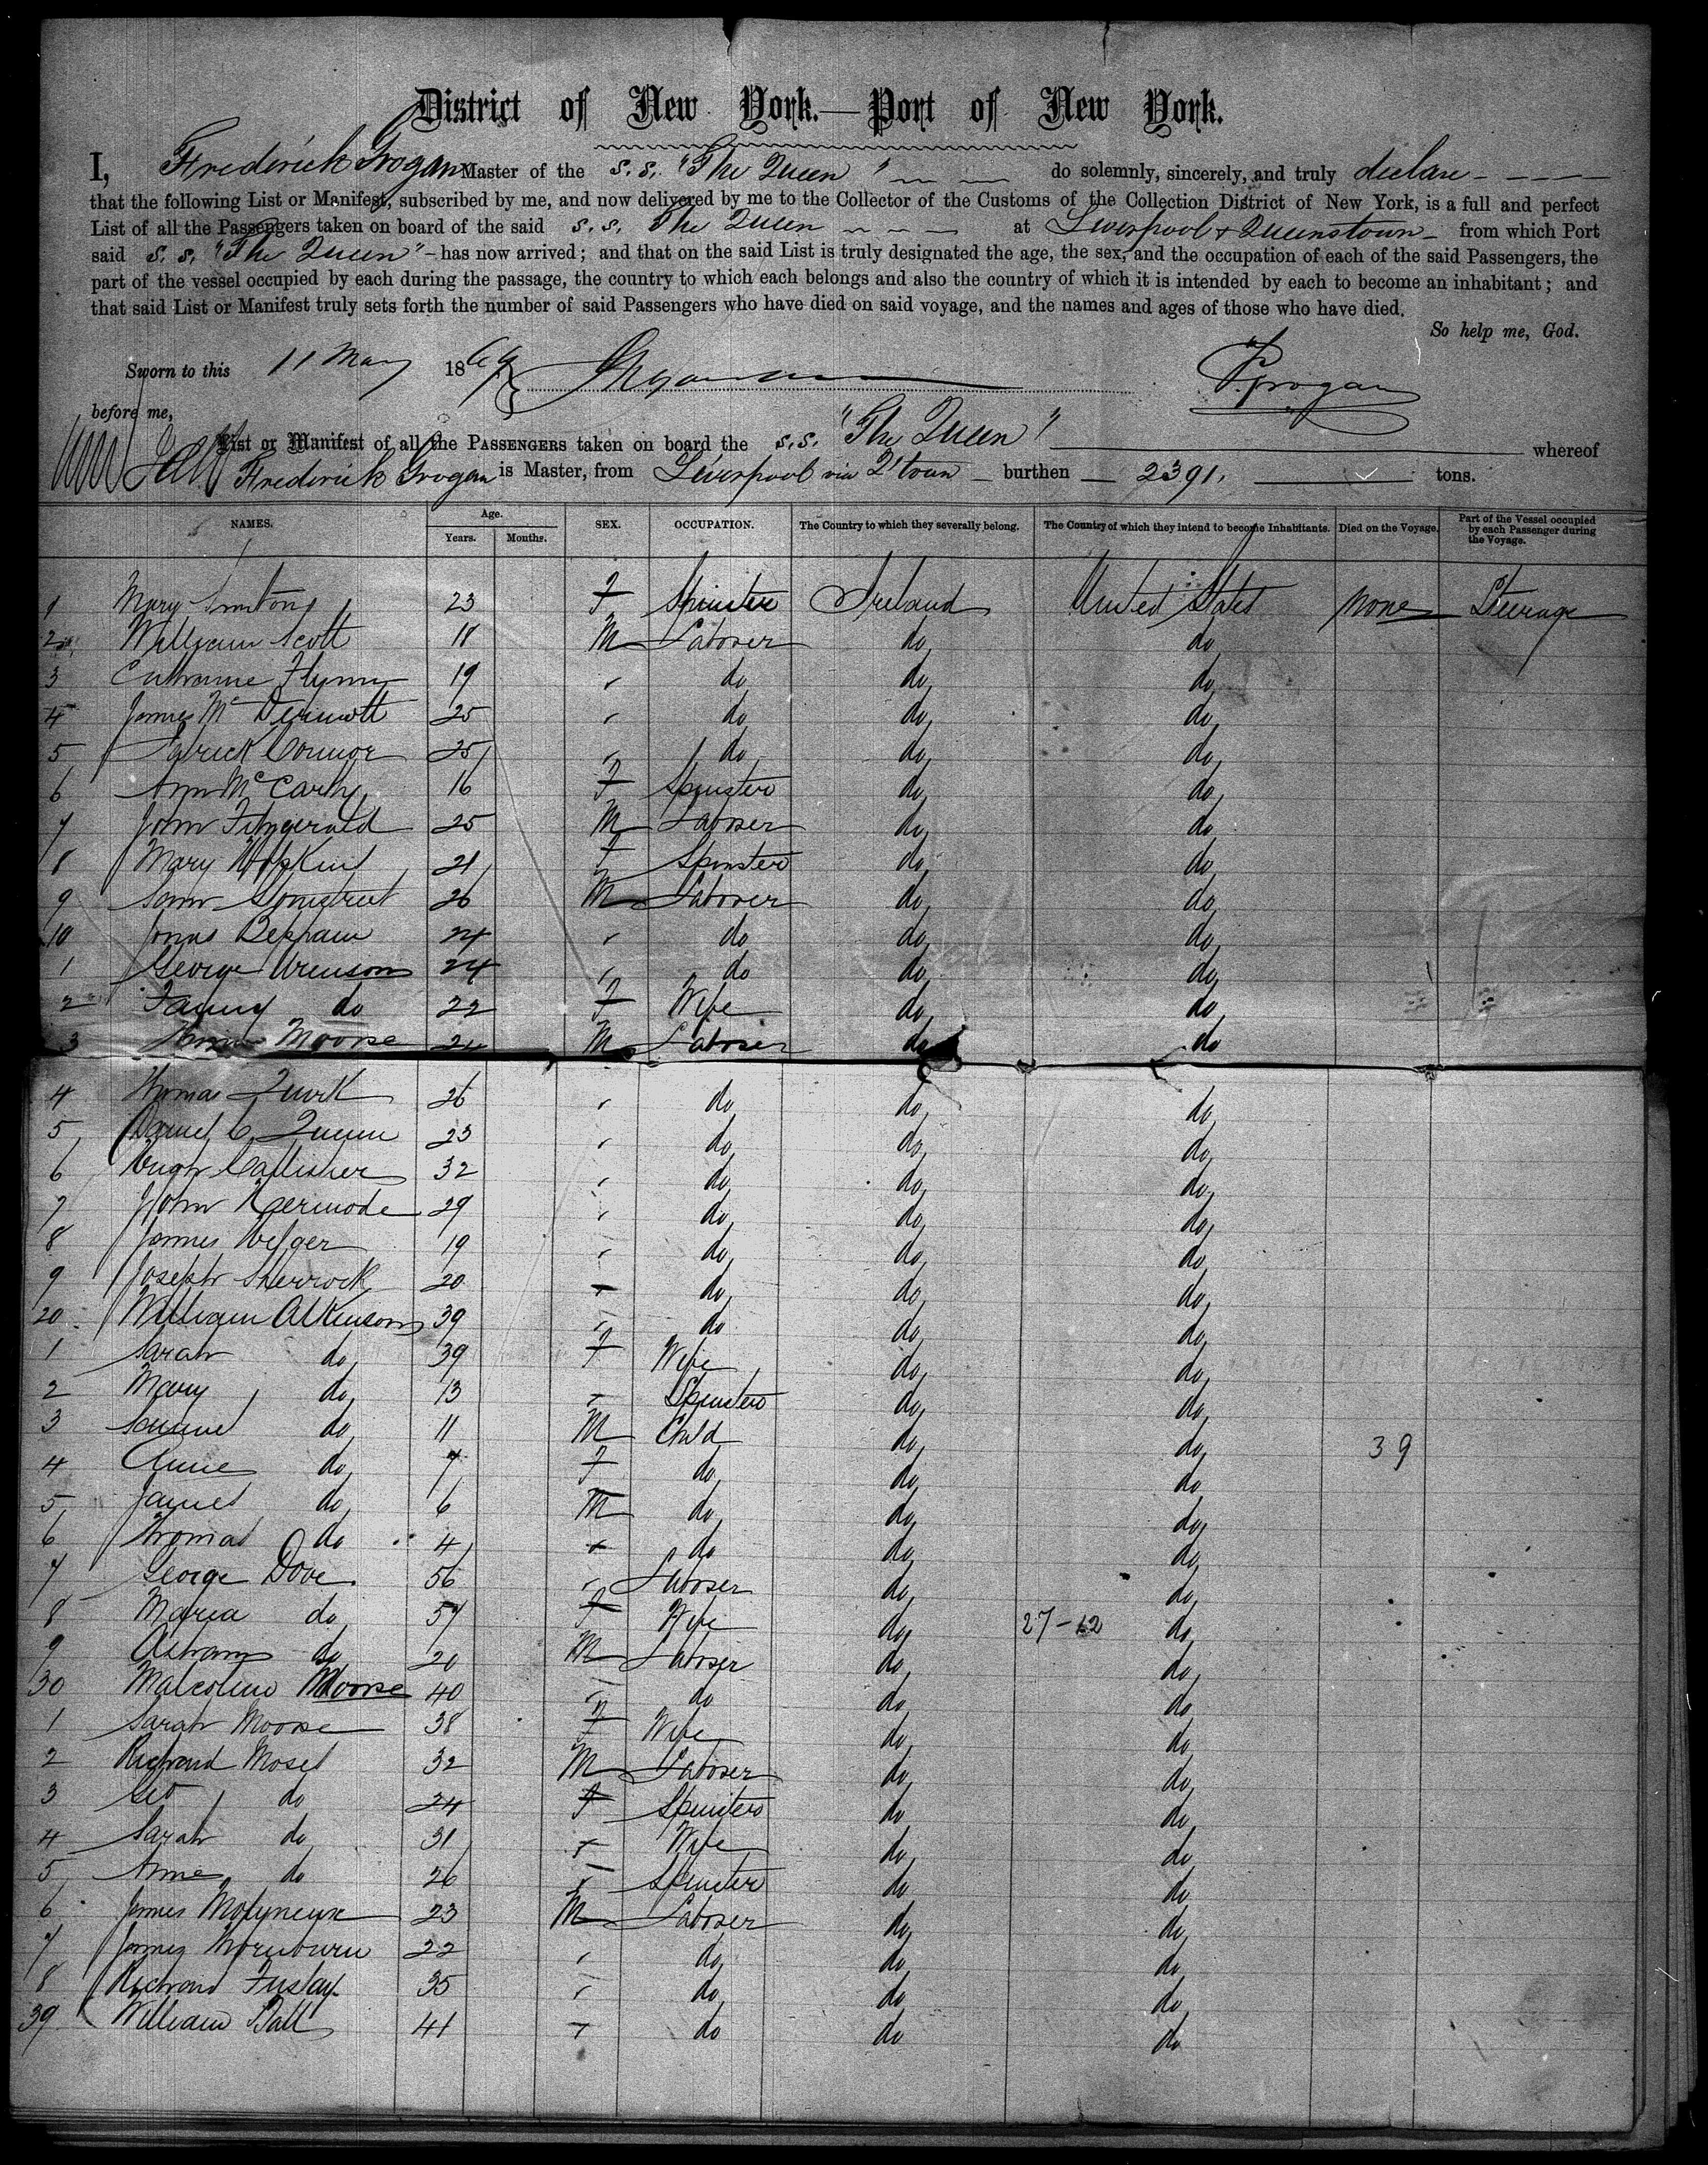 District of New York.— Port of New York.
I, Frederick Grogan Master of the s.s. "The Queen" do solemnly, sincerely, and truly declare
that the following List or Manifest, subscribed by me, and now delivered by me to the Collector of the Customs of the Collection District of New York, is a full and perfect
List of all the Passengers taken on board of the said s.s. The Queen at Liverpool & Queenstown from which Port
said s.s. "The Queen" has now arrived; and that on the said List is truly designated the age, the sex, and the occupation of each of the said Passengers, the
part of the vessel occupied by each during the passage, the country to which each belongs and also the country of which it is intended by each to become an inhabitant; and
that said List or Manifest truly sets forth the number of said Passengers who have died on said voyage, and the names and ages of those who have died.
So help me, God.
Sworn to this 11 May 1869 F. Grogan
before me,
List or Manifest of all the Passengers taken on board the s.s. "The Queen" whereof
Frederick Grogan is Master, from Liverpool via Q'town burthen 2391. tons.
NAMES. Age. Years. Months. SEX. OCCUPATION. The Country to which they severally belong. The Country of which they intend to become Inhabitants. Died on the Voyage. Part of the Vessel occupied by each Passenger during the Voyage.
1 Mary 23 F Spinster Ireland United States None Steerage
2 William Scott 18 M Laborer do do
3 Catharine Flynn 19 " do do do
4 James McDermott 25 " do do do
5 Patrick Connor 25 " do do do
6 Ann McCarthy 16 F Spinster do do
7 John Fitzgerald 25 M Laborer do do
8 Mary Hopkins 21 F Spinster do do
9 26 M Laborer do do
10 Jonas 24 " do do do
1 George 24 " do do do
2 Fanny do 22 F Wife do do
3 Moore 24 M Laborer do do
4 Thomas Quirk 26 " do do do
5 Daniel C. Quinn 23 " do do do
6 Hugh Callister 32 " do do do
7 John Kermode 29 " do do do
8 James 19 " do do do
9 Joseph Sherrock 20 " do do do
20 William Atkinson 39 " do do do
1 Sarah do 39 F Wife do do
2 Mary do 13 " Spinster do do
3 Samuel do 11 M Child do do 39
4 Annie do 7 F do do do
5 James do 6 M do do do
6 Thomas do 4 " do do do
7 George Dove 56 " Laborer do do
8 Maria do 57 F Wife do 27-12 do
9 Abram do 20 M Laborer do do
30 Malcolm Moore 40 " do do do
1 Sarah Moore 38 F Wife do do
2 Richard Moses 32 M Laborer do do
3 Geo do 24 F Spinster do do
4 Sarah do 31 " Wife do do
5 Anne do 26 " Spinster do do
6 James Molyneux 23 M Laborer do do
7 James Thornburn 22 " do do do
8 Richard 35 " do do do
39 William Ball 41 " do do do